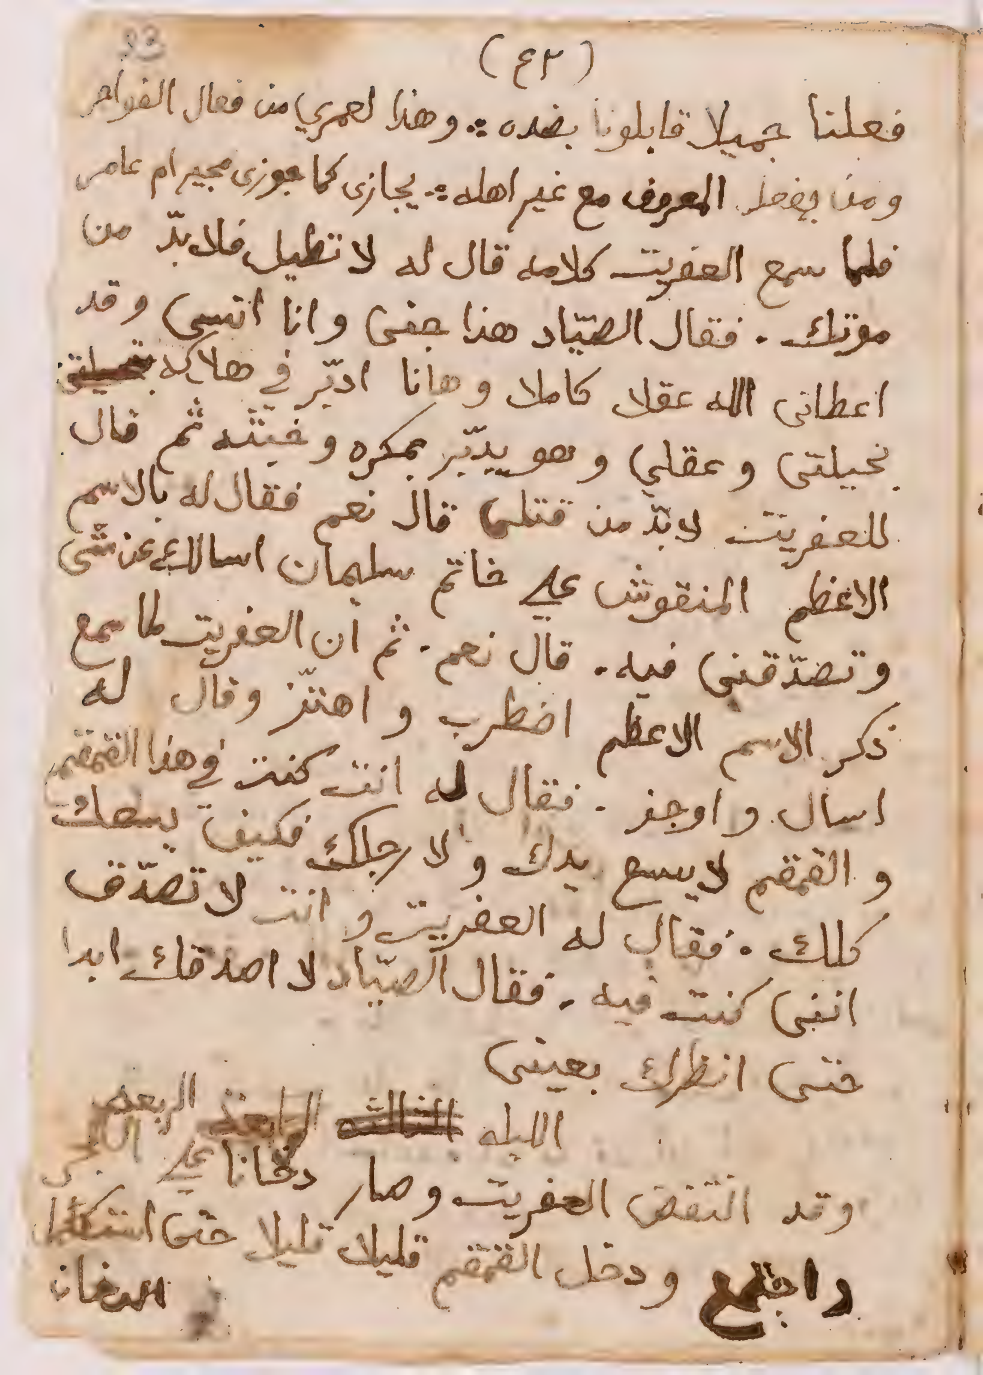 23
(٤٢)
فعلنا جميلا قابلونا بضده ∴ وهذا لعمري من فعال الفواجر
ومن يفعل المعروف مع غير اهله ∴ يجازى كما جوزى مجير ام عامر
فلما سمع العفريت كلامه قال له لا تطيل فلا بدّ من
موتك . فقال الصيّاد هذا جنى وانا انسى وقد
اعطانى الله عقلا كاملا وهانا ادبّر في هلاكه
بحيلتى وعقلي وهو يدبّر بمكره وخبثه ثم قال
للعفريت لا بدّ من قتلى قال نعم فقال له بالاسم
الاعظم المنقوش على خاتم سليمان اسالك عن شى
وتصدّقنى فيه . قال نعم . ثم ان العفريت لما سمع
ذكر الاسم الاعظم اضطرب و اهتزّ وقال له
اسال و اوجز . فقال له انت كنت في هذا القمقم
و القمقم لا يسع يدك و لا رجلك فكيف يسعك
كلك . فقال له العفريت و انت لا تصدّق
اننى كنت فيه . فقال الصيّاد لا اصدقك ابدا
حتى انظرك بعينى
الليله الثالثه الرابعة الربعه
وقد انتفض العفريت وصار دخانا على البحر
واجتمع و دخل القمقم قليلا قليلا حتى استكمل
الدخان